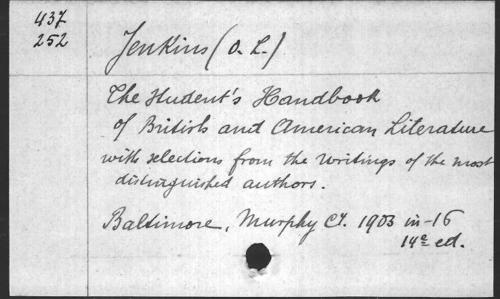 437
252
Jenkins (O. L.)
The Student's Handbook
of British and American Literature
with selections from the writings of the most
distinguished authors.
Baltimore, Murphy Cy. 1903 in-16
14e ed.